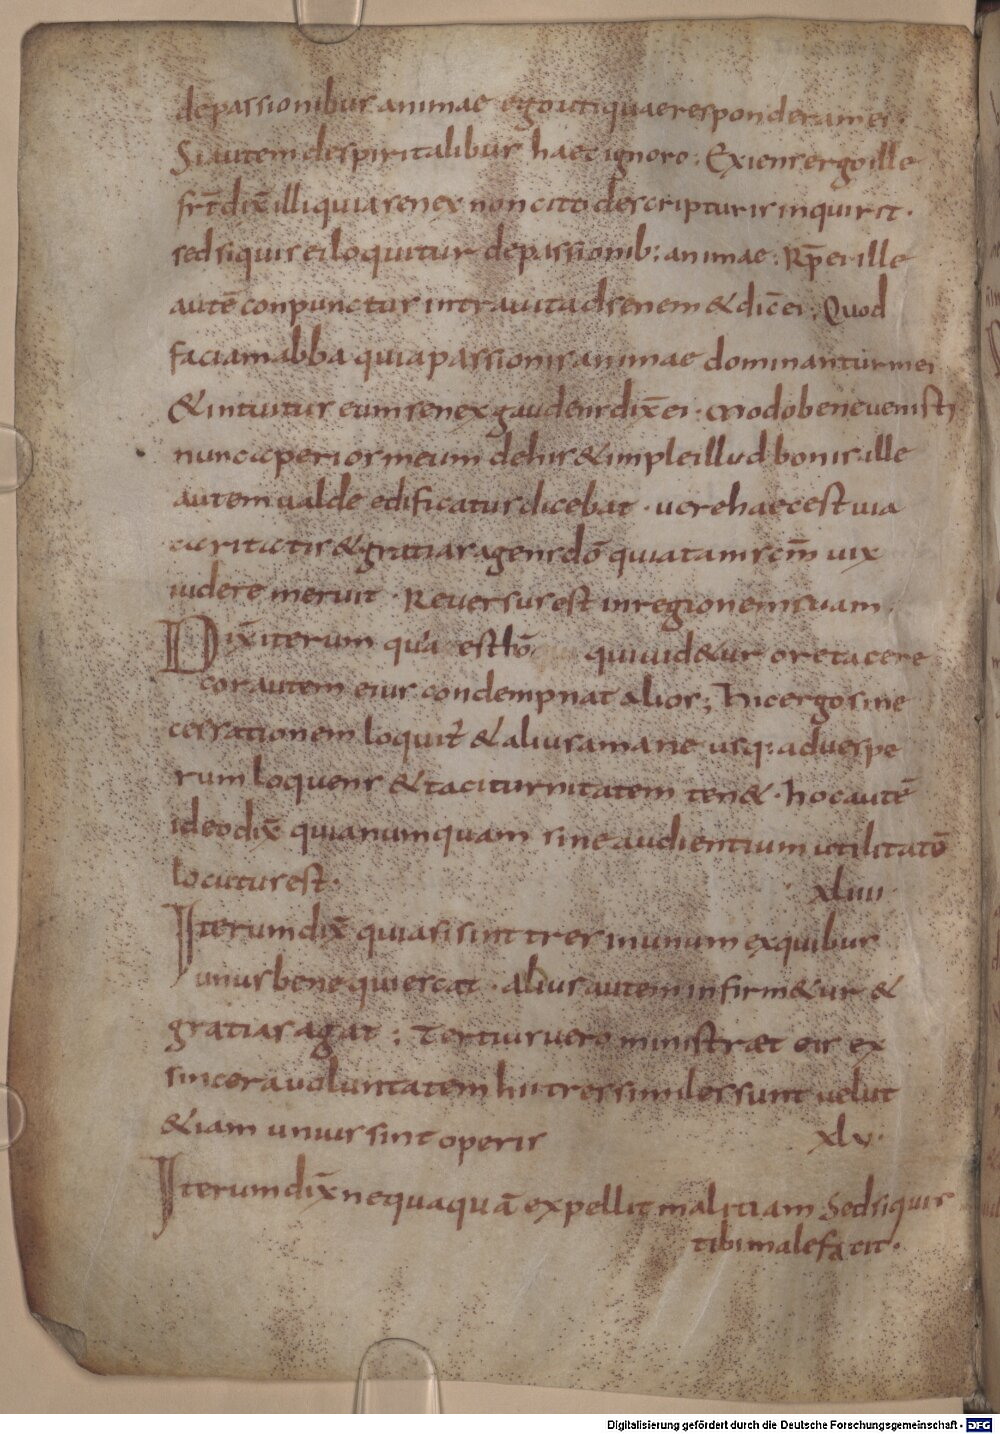 depassionibus animae ego utiquae responderam ei.
Si autem despiritalibus haec ignoro. Exiens ergo ille
fr̄t dix̄ illi quia senex non cito descripturis inquirit.
sed siquis ei loquitur depassionib: animae. Rp̄ ei ille
autē conpunctus intrauit ad senem & dic̄ ei. Quod
faciam abba quia passionis animae dominantur mei
& intuitus eum senex gaudens dix̄ ei. modo bene uenisti
nunc aperi os meum de his & impleillud bonis ille
autem ualde edificatus dicebat. uere haec est uia
caritatis & gratias agens dō quia tam sc̄m uix
uidere meruit. Reuersus est in regionem suam.
Dix̄ iterum quia est hō qui uid&ur ore tacere
cor autem eius condempnat alios; hic ergo sine
cessationem loquit̄ & alius a mane usq: ad uespe
rum loquens & taciturnitatem ten&. hoc autē
ideo dix̄ quia numquam sine audientium utilitatē
locutus est.
xliiii.
Iterum dix̄ quia si sint tres in unum ex quibus
unus bene quiescat. alius autem infirm&ur &
gratias agat; Tertius uero ministræt eis ex
sincera uoluntatem hii tres similes sunt uelut
&iam unius sint operis
xlv.
Iterum dix̄ nequaquā expellit malitiam Sed siquis
tibi malefacit.
Digitalisierung gefördert durch die Deutsche Forschungsgemeinschaft - DFG